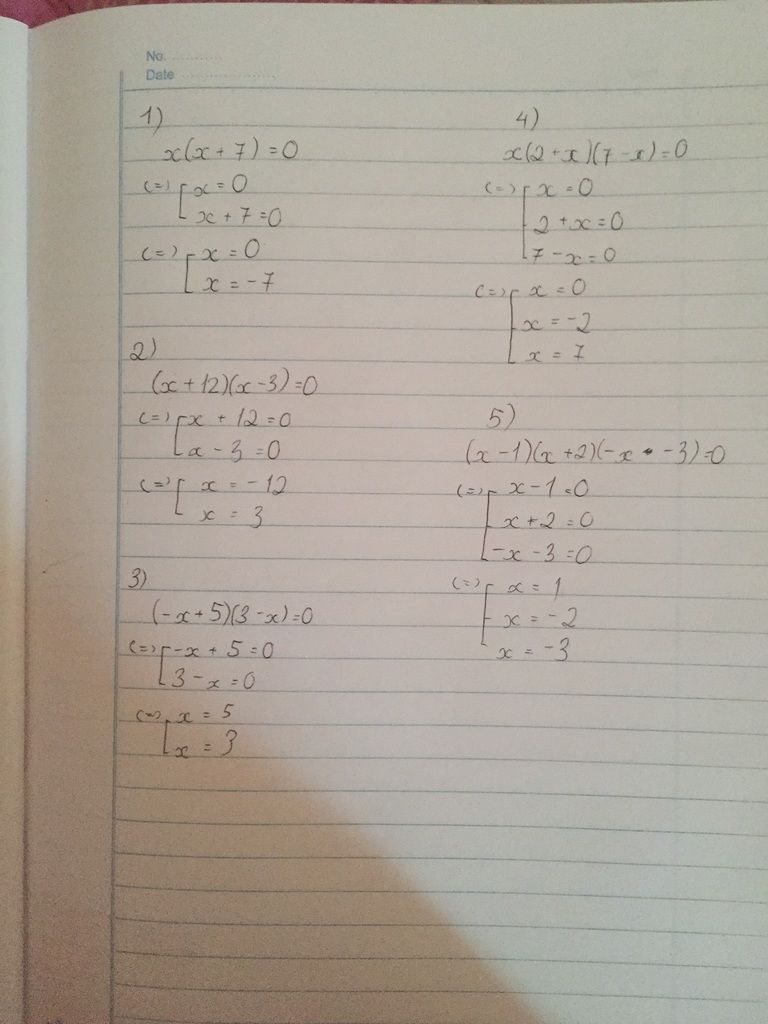 No. ............
Date ........................
1)
x(x + 7) = 0
(=) [ x = 0
x + 7 = 0
(=) [ x = 0
x = -7
2)
(x + 12)(x - 3) = 0
(=) [ x + 12 = 0
x - 3 = 0
(=) [ x = -12
x = 3
3)
(-x + 5)(3 - x) = 0
(=) [ -x + 5 = 0
3 - x = 0
(=) [ x = 5
x = 3
4)
x(2 + x)(7 - x) = 0
(=) [ x = 0
2 + x = 0
7 - x = 0
(=) [ x = 0
x = -2
x = 7
5)
(x - 1)(x + 2)(-x - 3) = 0
(=) [ x - 1 = 0
x + 2 = 0
-x - 3 = 0
(=) [ x = 1
x = -2
x = -3